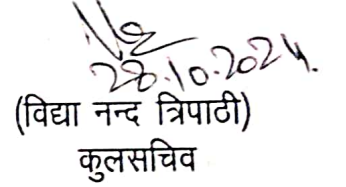 28.10.2024.
(विद्या नन्द त्रिपाठी)
कुलसचिव